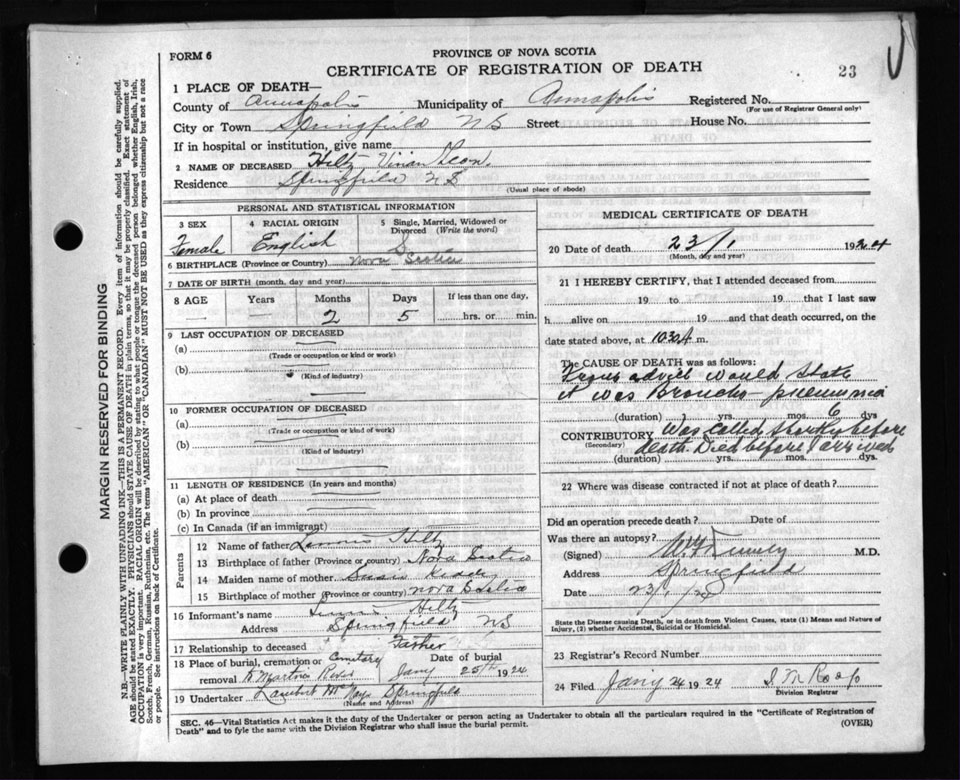 FORM 6
PROVINCE OF NOVA SCOTIA
CERTIFICATE OF REGISTRATION OF DEATH
23
1 PLACE OF DEATH—
County of Annapolis Municipality of Annapolis Registered No.
(For use of Registrar General only)
City or Town Springfield NS Street House No.
If in hospital or institution, give name
2 NAME OF DECEASED Hiltz Vivian Leon
Residence Springfield NS
(Usual place of abode)
PERSONAL AND STATISTICAL INFORMATION
3 SEX 4 RACIAL ORIGIN 5 Single, Married, Widowed or Divorced (Write the word)
Female English S
6 BIRTHPLACE (Province or Country) Nova Scotia
7 DATE OF BIRTH (month, day and year)
8 AGE Years Months Days If less than one day,
— — 2 5 hrs. or min.
9 LAST OCCUPATION OF DECEASED
(a)
(Trade or occupation or kind or work)
(b)
(Kind of industry)
10 FORMER OCCUPATION OF DECEASED
(a)
(Trade or occupation or kind or work)
(b)
(Kind of industry)
11 LENGTH OF RESIDENCE (In years and months)
(a) At place of death
(b) In province
(c) In Canada (if an immigrant)
Parents
12 Name of father Lennis Hiltz
13 Birthplace of father (Province or country) Nova Scotia
14 Maiden name of mother Susie
15 Birthplace of mother (Province or country) Nova Scotia
16 Informant's name Lennis Hiltz
Address Springfield NS
17 Relationship to deceased Father
18 Place of burial, cremation or removal Cemetery Martins River Date of burial Jany 25th 1924
19 Undertaker Lambert McNayr Springfield
(Name and Address)
MEDICAL CERTIFICATE OF DEATH
20 Date of death 23/1 1924
(Month, day and year)
21 I HEREBY CERTIFY, that I attended deceased from
19 to 19 that I last saw
h alive on 19 and that death occurred, on
date stated above, at 10.30 A m.
The CAUSE OF DEATH was as follows:
From advice would state
it was Broncho pneumonia
(duration) yrs. mos. 6 dys
CONTRIBUTORY Was called shortly before
(Secondary) death. Died before I arrived
(duration) yrs. mos. dys.
22 Where was disease contracted if not at place of death?
Did an operation precede death? Date of
Was there an autopsy?
(Signed) M.D.
Address Springfield
Date 23/1/24
State the Disease causing Death, or in death from Violent Causes, state (1) Means and Nature of
Injury, (2) whether Accidental, Suicidal or Homicidal.
23 Registrar's Record Number
24 Filed Jany 24 1924 I M Roop
Division Registrar
SEC. 46—Vital Statistics Act makes it the duty of the Undertaker or person acting as Undertaker to obtain all the particulars required in the "Certificate of Registration of
Death" and to fyle the same with the Division Registrar who shall issue the burial permit. (OVER)
MARGIN RESERVED FOR BINDING
N.B.—WRITE PLAINLY WITH UNFADING INK—THIS IS A PERMANENT RECORD. Every item of information should be carefully supplied.
AGE should be stated EXACTLY. PHYSICIANS should STATE CAUSE OF DEATH in plain terms, so that it may be properly classified. Exact statement of
OCCUPATION is very important. RACIAL ORIGIN will be described by stating to what people or tongue the deceased person belonged whether English, Irish,
Scotch, French, German, Russian, Ruthenian, etc. The terms "AMERICAN" OR "CANADIAN" MUST NOT BE USED as they express citizenship but not a race
or people. See instructions on back of Certificate.